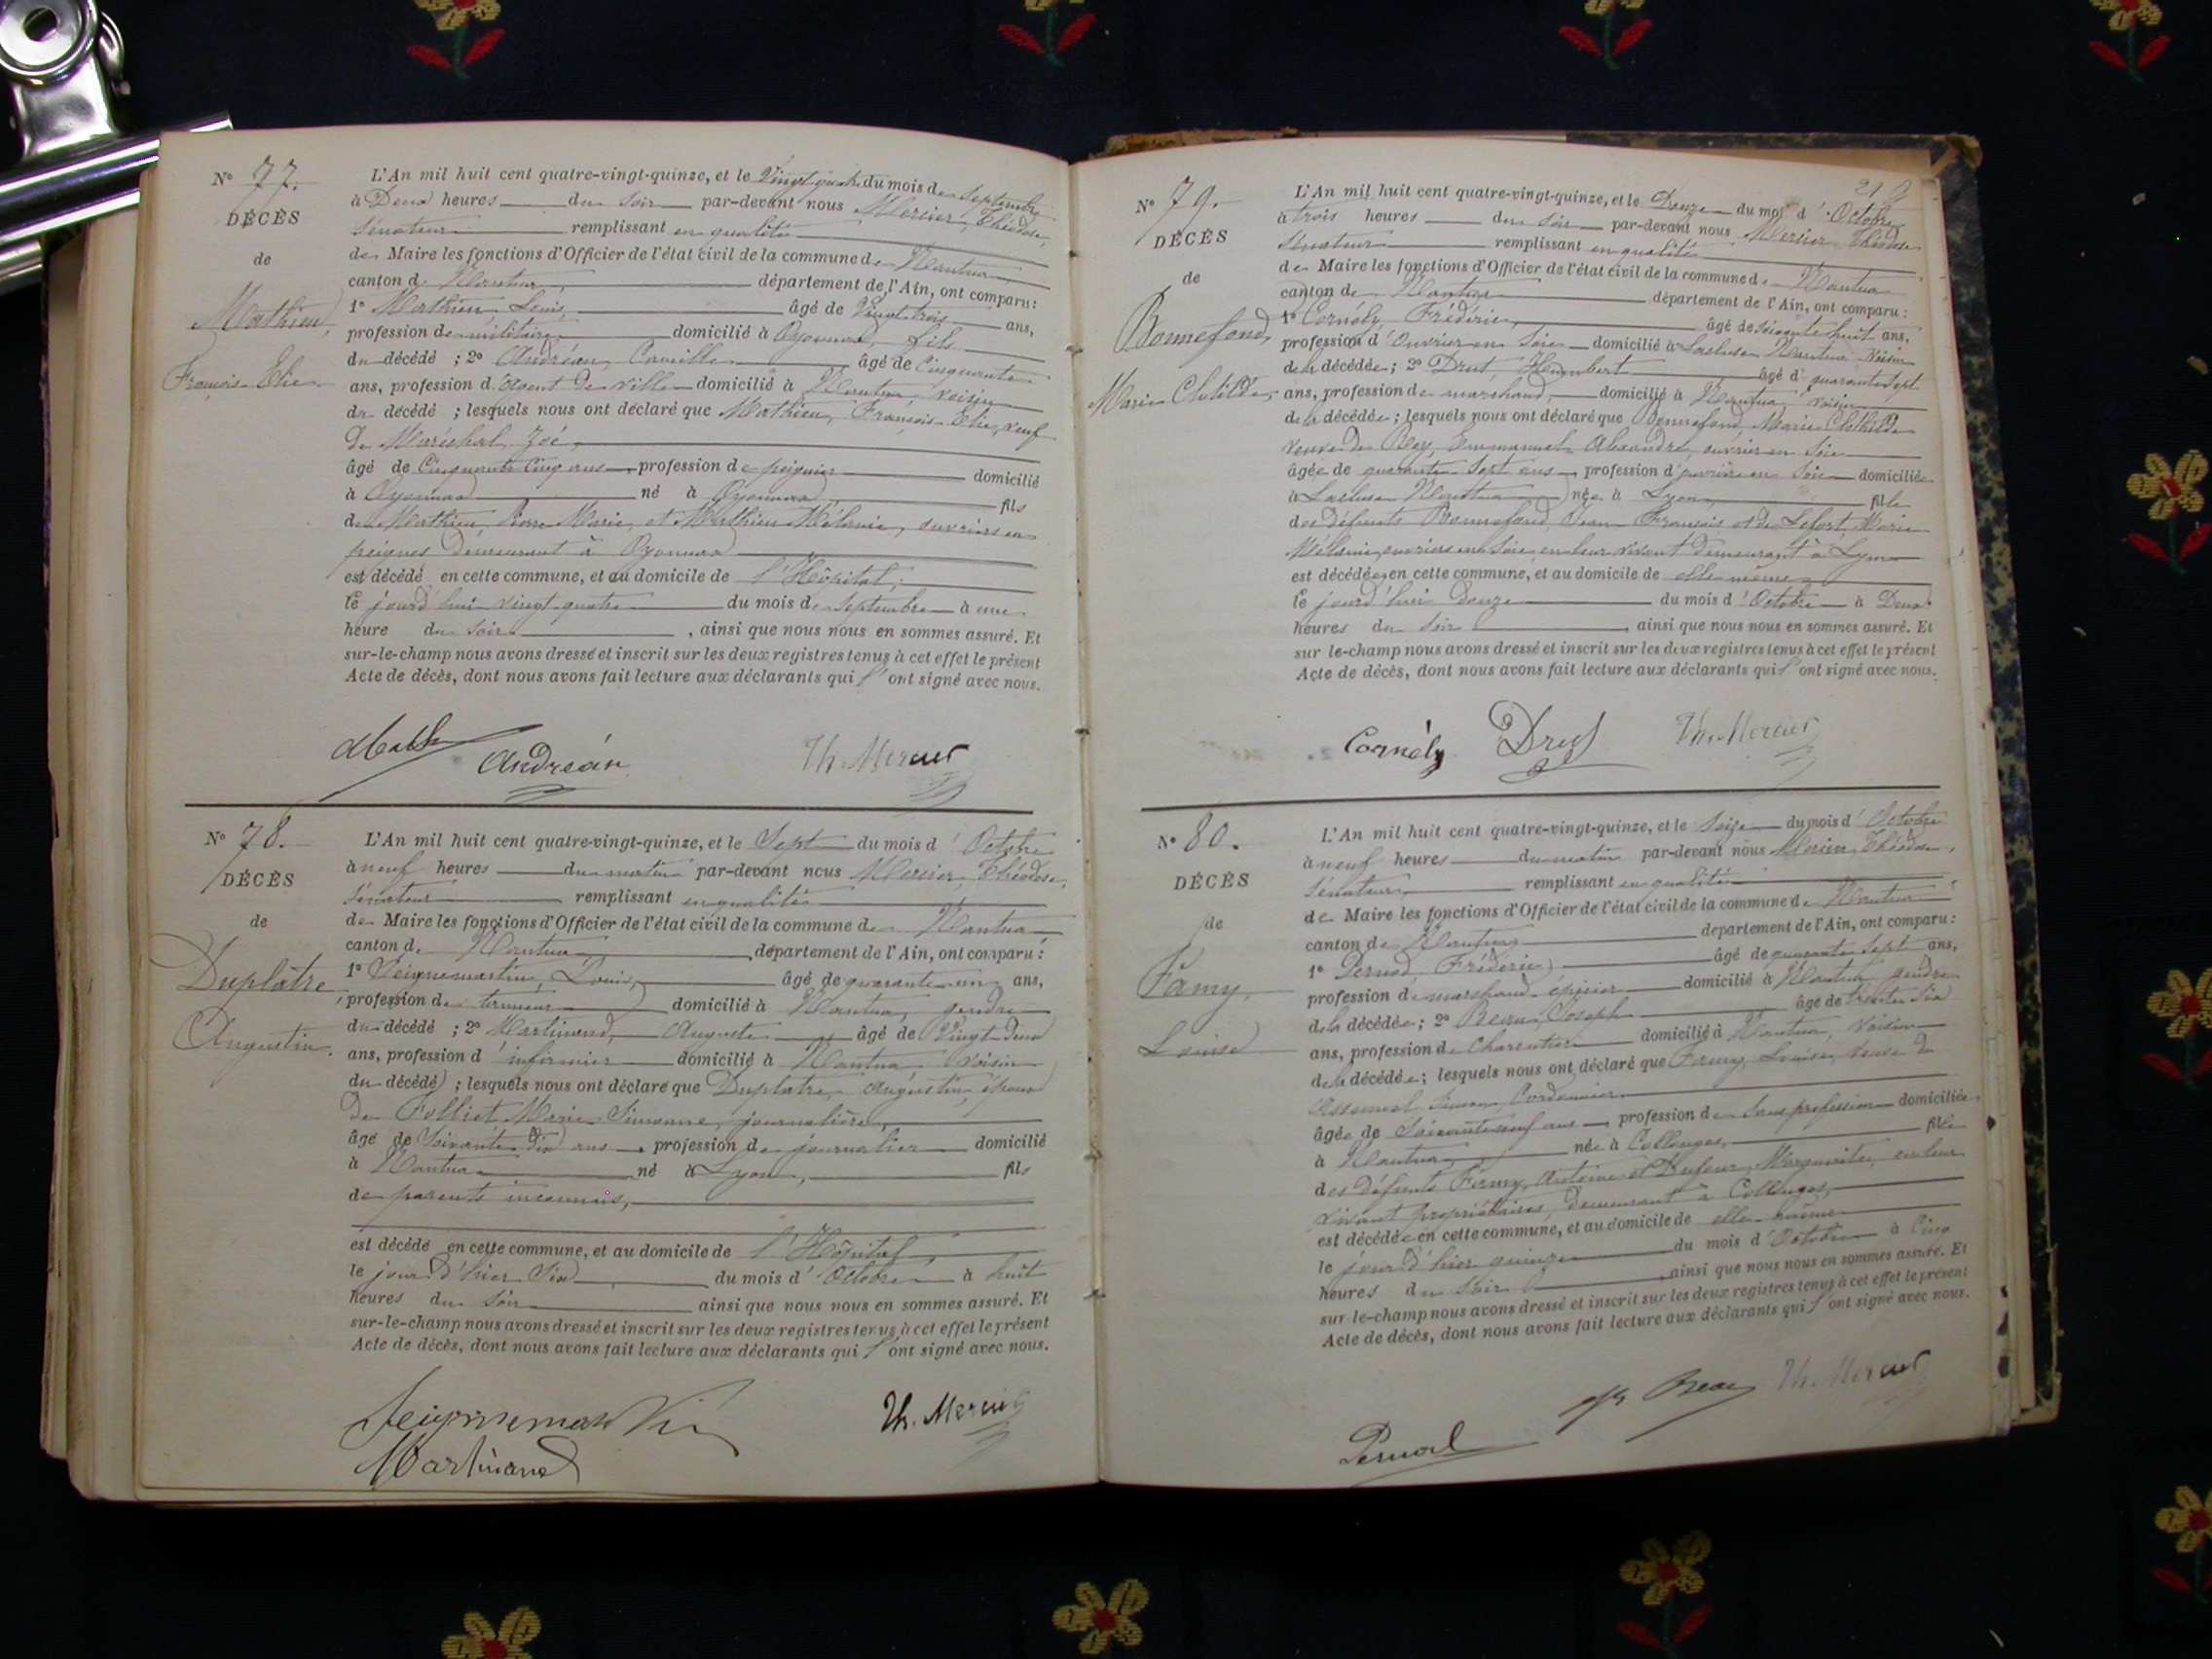 N° 77.
DÉCÈS
de
Mathieu,
François Elie
L'An mil huit cent quatre-vingt-quinze, et le Vingt quatre du mois de Septembre
à Deux heures du soir par-devant nous Mercier, Théodose,
Sénateur remplissant en qualité
de Maire les fonctions d'Officier de l'état civil de la commune de Nantua
canton de Nantua, département de l'Ain, ont comparu:
1° Mathieu Louis, âgé de Vingt trois ans,
profession de militaire domicilié à Oyonnax, fils
du décédé ; 2° Andréan, Camille âgé de Cinquante
ans, profession d'agent de ville domicilié à Nantua, voisin
du décédé ; lesquels nous ont déclaré que Mathieu, François Elie, veuf
de Maréchal, Zoé,
âgé de Cinquante Cinq ans, profession de peignier domicilié
à Oyonnax né à Oyonnax, fils
de Mathieu, Pierre Marie, et Mathieu Mélanie, ouvriers en
peignes demeurant à Oyonnax
est décédé en cette commune, et au domicile de l'Hôpital,
le jourd'hui vingt-quatre du mois de Septembre à une
heure du soir, ainsi que nous nous en sommes assuré. Et
sur-le-champ nous avons dressé et inscrit sur les deux registres tenus à cet effet le présent
Acte de décès, dont nous avons fait lecture aux déclarants qui l'ont signé avec nous.
Andréan Th. Mercier
N° 78.
DÉCÈS
de
Duplâtre,
Augustin.
L'An mil huit cent quatre-vingt-quinze, et le Sept du mois d'Octobre
à neuf heures du matin par-devant nous Mercier, Théodose,
Sénateur remplissant en qualité
de Maire les fonctions d'Officier de l'état civil de la commune de Nantua
canton de Nantua, département de l'Ain, ont comparu:
1° Seignemartin, Louis, âgé de quarante un ans,
profession de tanneur domicilié à Nantua, gendre
du décédé ; 2° Martinand, Auguste âgé de Vingt deux
ans, profession d'infirmier domicilié à Nantua Voisin
du décédé ; lesquels nous ont déclaré que Duplatre, Augustin, époux
de Folliet Marie Simonne, journalière,
âgé de Soixante dix ans, profession de journalier domicilié
à Nantua né à Lyon, fils
de parents inconnus,
est décédé en cette commune, et au domicile de l'Hôpital,
le jour d'hier Six du mois d'Octobre à huit
heures du soir ainsi que nous nous en sommes assuré. Et
sur-le-champ nous avons dressé et inscrit sur les deux registres tenus à cet effet le présent
Acte de décès, dont nous avons fait lecture aux déclarants qui l'ont signé avec nous.
Th. Mercier
Martinand
N° 79.
DÉCÈS
de
Bonnefond,
Marie Clotilde,
L'An mil huit cent quatre-vingt-quinze, et le Douze du mois d'Octobre
à trois heures du soir par-devant nous Mercier Théodose
Sénateur remplissant en qualité
de Maire les fonctions d'Officier de l'état civil de la commune de Nantua
canton de Nantua département de l'Ain, ont comparu:
1° Cornély, Frédéric, âgé de soixante huit ans,
profession d'ouvrier en soie domicilié à Lacluse Nantua Voisin
de la décédée ; 2° Drut, Humbert âgé d' quarante sept
ans, profession de marchand, domicilié à Nantua voisin
de la décédée ; lesquels nous ont déclaré que Bonnefond, Marie Clothilde
veuve de Rey, Emmanuel Alexandre, ouvrier en soie
âgée de quarante sept ans, profession d'ouvrière en soie domiciliée
à Lacluse Nantua née à Lyon, fille
des défunts Bonnefond, Jean François et de Lefort, Marie
Mélanie, ouvriers en soie, en leur vivant demeurant à Lyon
est décédée en cette commune, et au domicile de elle-même
le jourd'hui douze du mois d'Octobre à Deux
heures du soir ainsi que nous nous en sommes assuré. Et
sur le-champ nous avons dressé et inscrit sur les deux registres tenus à cet effet le présent
Acte de décès, dont nous avons fait lecture aux déclarants qui l'ont signé avec nous.
Cornély Drut Th. Mercier
N° 80.
DÉCÈS
de
Famy,
Louise
L'An mil huit cent quatre-vingt-quinze, et le Seize du mois d'Octobre
à neuf heures du matin par-devant nous Mercier Théodose,
Sénateur, remplissant en qualité
de Maire les fonctions d'Officier de l'état civil de la commune de Nantua
canton de Nantua département de l'Ain, ont comparu:
1° Pernod, Frédéric, âgé de quarante sept ans,
profession de marchand épicier domicilié à Nantua, gendre
de la décédée ; 2° Joseph âgé de trente six
ans, profession de Charcutier domicilié à Nantua, voisin
de la décédée ; lesquels nous ont déclaré que Famy, Louise, veuve de
Cordonnier
âgée de Soixante neuf ans, profession de Sans profession domiciliée
à Nantua, née à Collonges, fille
des défunts Famy, Antoine et Dufour, Marguerite, en leur
vivant propriétaires, demeurant à Collonges,
est décédée en cette commune, et au domicile de elle même
le jour d'hier quinze du mois d'Octobre à Cinq
heures du soir ainsi que nous nous en sommes assuré. Et
sur-le-champ nous avons dressé et inscrit sur les deux registres tenus à cet effet le présent
Acte de décès, dont nous avons fait lecture aux déclarants qui l'ont signé avec nous.
Th. Mercier
Pernod